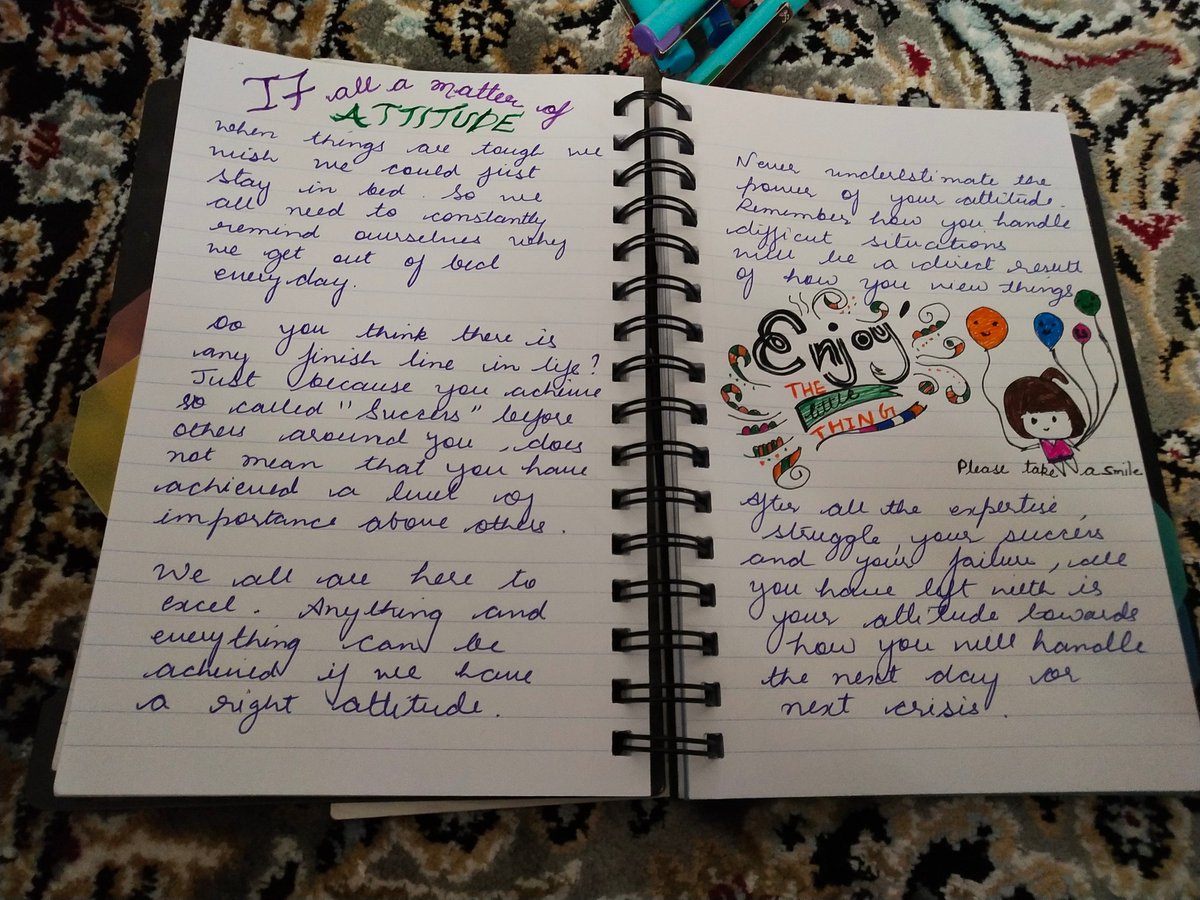 If all a matter of
ATTITUDE
when things are tough we
wish we could just
stay in bed. So we
all need to constantly
remind ourselves why
we get out of bed
everyday.
Do you think there is
any finish line in life?
Just because you achieve
so called "Success" before
others around you, does
not mean that you have
achieved a level of
importance above others.
We all are here to
excel. Anything and
everything can be
achieved if we have
a right attitude.
Never underestimate the
power of your attitude.
Remember how you handle
difficut situations
will be a direct result
of how you view things
Enjoy
THE
THING
Please take a smile
After all the expertise,
struggle, your success
and your failure, all
you have left with is
your attitude towards
how you will handle
the next day or
next crisis.